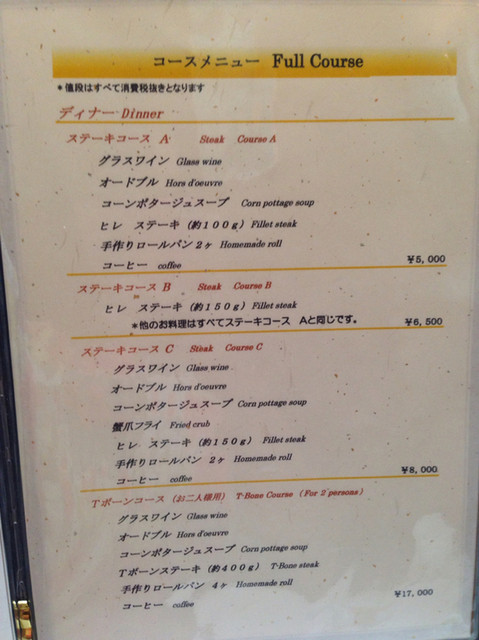 コースメニュー Full Course
*値段はすべて消費税抜きとなります
ディナー Dinner
ステーキコース A Steak Course A
グラスワイン Glass wine
オードブル Hors d'oeuvre
コーンポタージュスープ Corn pottage soup
ヒレ ステーキ (約100g) Fillet steak
手作りロールパン2ヶ Homemade roll
コーヒー coffee ¥5,000
ステーキコース B Steak Course B
ヒレ ステーキ (約150g) Fillet steak
*他のお料理はすべてステーキコース Aと同じです。 ¥6,500
ステーキコース C Steak Course C
グラスワイン Glass wine
オードブル Hors d'oeuvre
コーンポタージュスープ Corn pottage soup
蟹爪フライ Fried crub
ヒレ ステーキ (約150g) Fillet steak
手作りロールパン 2ヶ Homemade roll
コーヒー coffee ¥8,000
Tボーンコース (お二人様用) T-Bone Course (For 2 persons)
グラスワイン Glass wine
オードブル Hors d'oeuvre
コーンポタージュスープ Corn pottage soup
Tボーンステーキ (約400g) T-Bone steak
手作りロールパン 4ヶ Homemade roll
コーヒー coffee ¥17,000